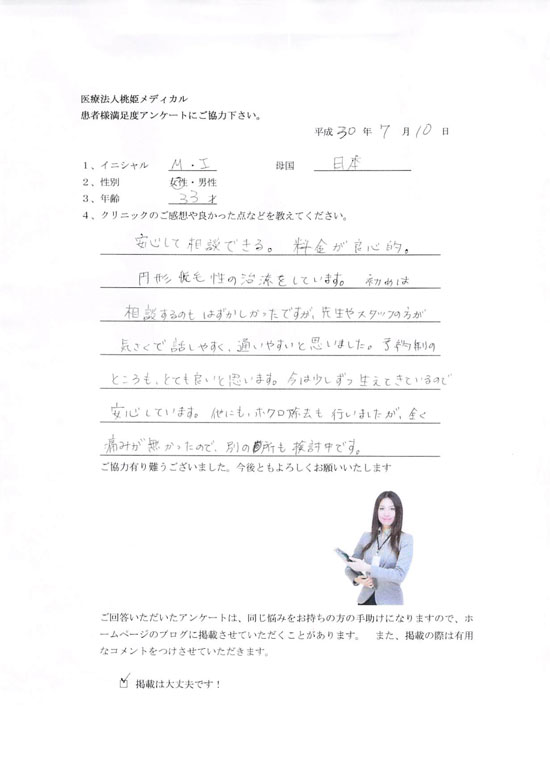 医療法人桃姫メディカル
患者様満足度アンケートにご協力下さい。
平成 30 年 7 月 10 日
1、イニシャル M・I 母国 日本
2、性別 女性・男性
3、年齢 33才
4、クリニックのご感想や良かった点などを教えてください。
安心して相談できる。 料金が良心的。
円形脱毛性の治療をしています。 初めは
相談するのもはずかしかったですが、先生やスタッフの方が
気さくで話しやすく、通いやすいと思いました。予約制の
ところも、とても良いと思います。今は少しずつ生えてきているので
安心しています。他にも、ホクロ除去も行いましたが、全く
痛みが無かったので、別の箇所も検討中です。
ご協力有り難うございました。今後ともよろしくお願いいたします
ご回答いただいたアンケートは、同じ悩みをお持ちの方の手助けになりますので、ホ
ームページのブログに掲載させていただくことがあります。 また、掲載の際は有用
なコメントをつけさせていただきます。
掲載は大丈夫です！